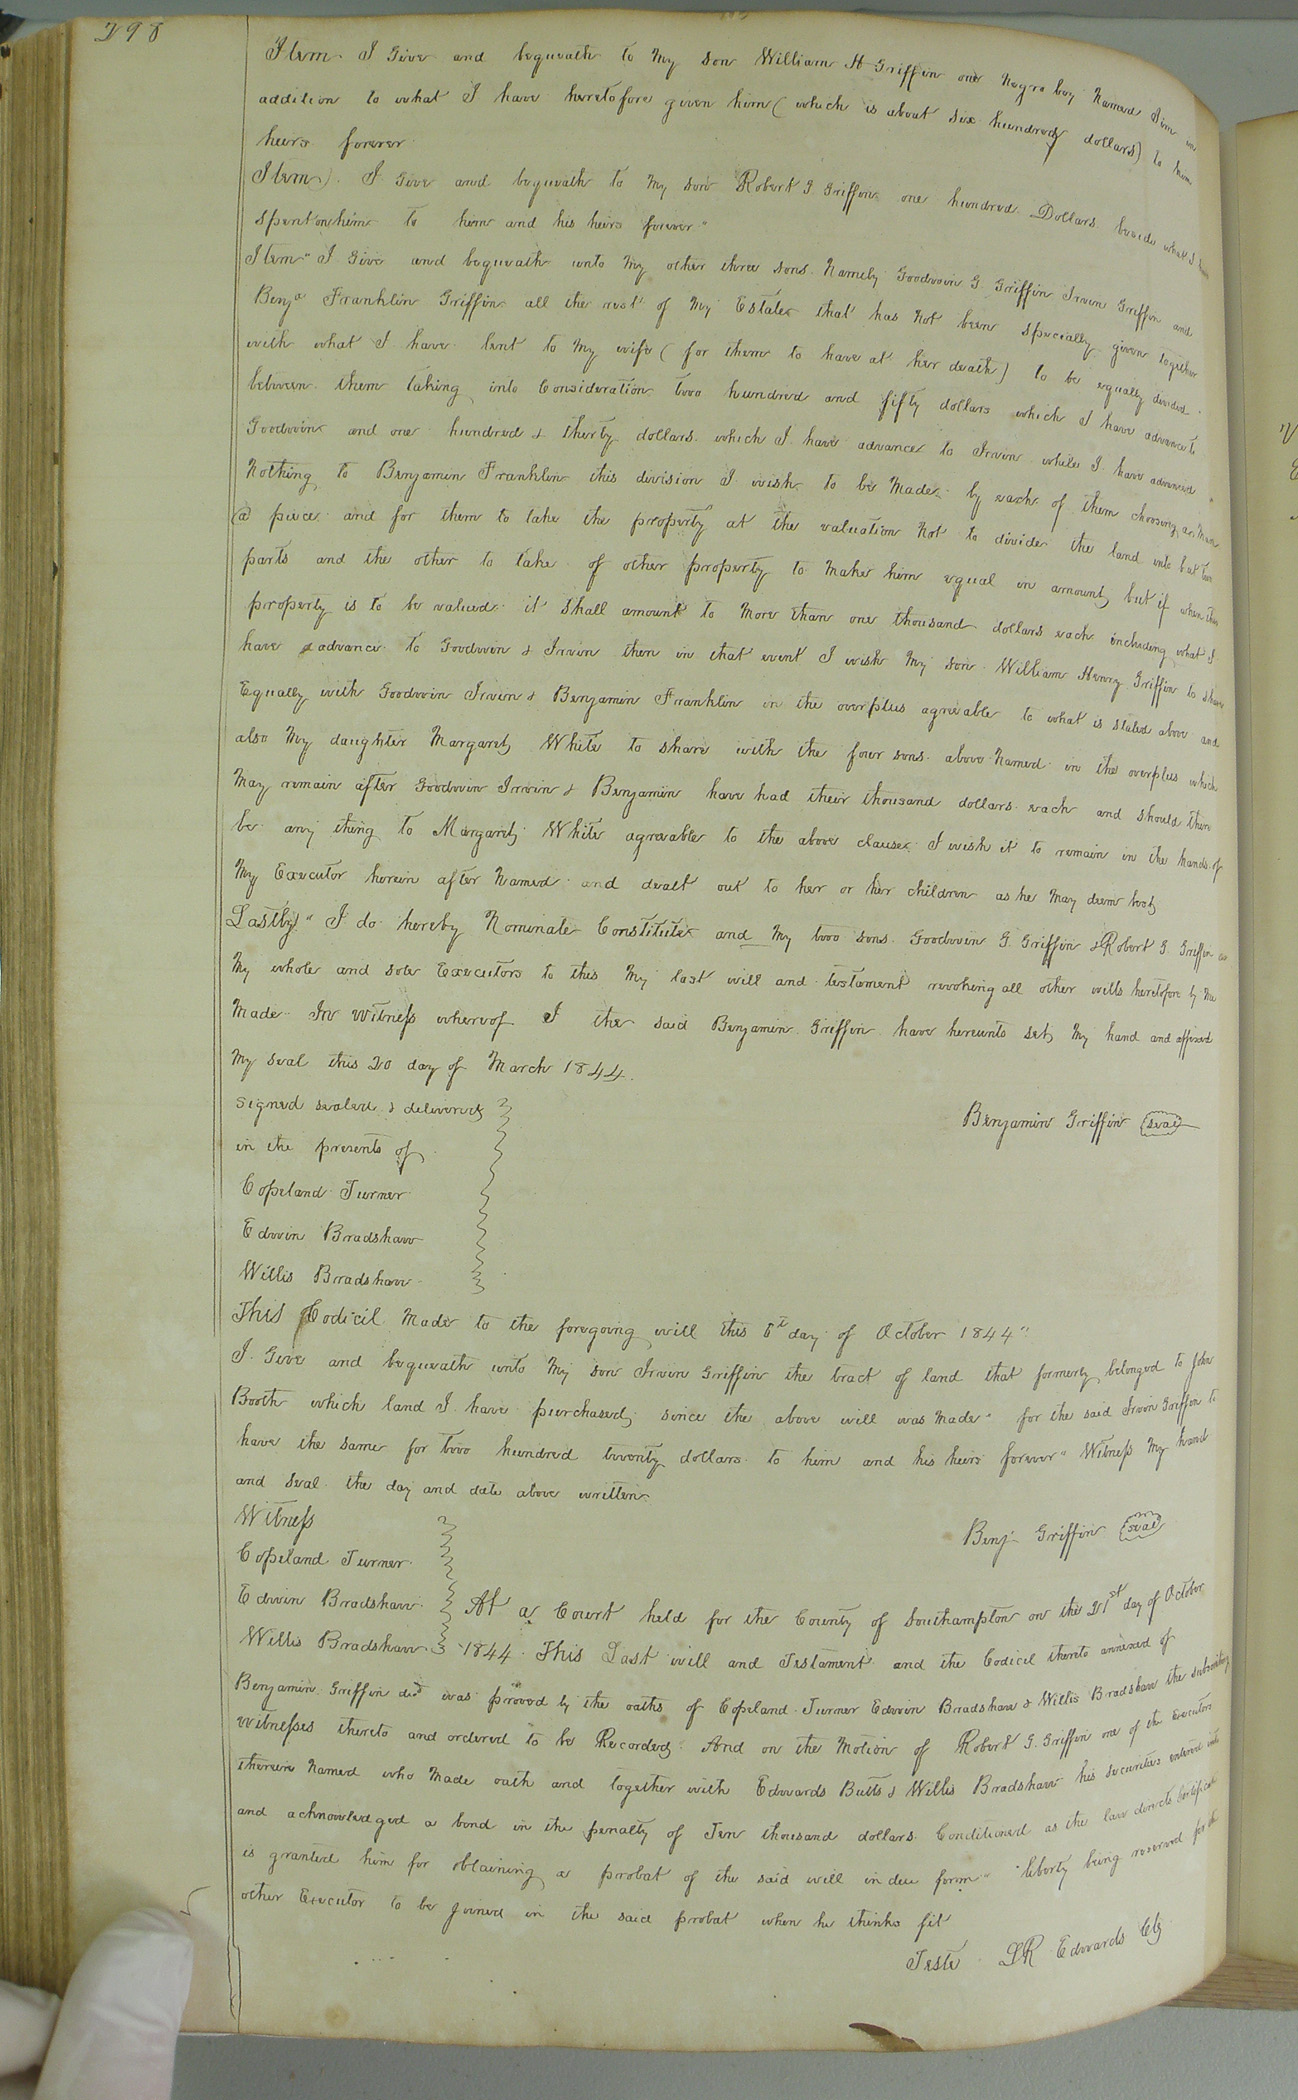 298
Item I Give and bequeath to My son William H Griffin one Negro boy Named Sim in
addition to what I have heretofore given him (which is about six hundred dollars) to him
heirs forever
Item). I Give and bequeath to My son Robert G. Griffin one hundred Dollars beside what I have
spent on him to him and his heirs forever"
Item" I Give and bequeath unto My other three sons Namely Goodwin G. Griffin Irvin Griffin and
Benja Franklin Griffin all the rest of My Estate that has Not been specially given together
with what I have lent to My wife (for them to have at her death) to be equally divided
between them taking into Consideration two hundred and fifty dollars which I have advance to
Goodwin and one hundred & therty dollars which I have advance to Irvin while I have advanced
Nothing to Benjamin Franklin this division I wish to be Made by each of them choosing a Man
a piece and for them to take the property at the valuation Not to divide the land into but two
parts and the other to take of other property to Make him equal in amount, but if when the
property is to be valued it shall amount to More than one thousand dollars each including what I
have advance to Goodwin & Irvin then in that event I wish My son William Henry Griffin to share
Equally with Goodwin Irvin & Benjamin Franklin in the overplus agreeable to what is stated above and
also My daughter Margaret White to share with the four sons above Named in the overplus which
May remain after Goodwin Irvin & Benjamin have had their thousand dollars each and should there
be any thing to Margaret White agreeable to the above clause I wish it to remain in the hands of
My Executor herein after Named and dealt out to her or her children as he May deem best
Lastly" I do hereby Nominate Constitute and My two sons Goodwin G. Griffin & Robert G. Griffin as
My whole and sole Executors to this My last will and testament revoking all other wills heretofore by Me
Made In Witness whereof I the said Benjamin Griffin have hereunto set My hand and affixed
My seal this 20 day of March 1844.
Signed sealed & delivered
in the presents of
Benjamin Griffin seal
Copeland Turner
Edwin Bradshaw
Willis Bradshaw
This Codicil Made to the foregoing will this 6th day of October 1844"
I Give and bequeath unto My son Irvin Griffin the tract of land that formerly belonged to John
Booth which land I have purchased since the above will was Made" for the said Irvin Griffin to
have the same for two hundred twenty dollars to him and his heirs forever" Witness My hand
and Seal the day and date above written
Witness
Benj. Griffin seal
Copeland Turner
Edwin Bradshaw
Willis Bradshaw
At a Court held for the County of Southampton on the 21st day of October
1844 This Last will and Testament and the Codicil thereto annexed of
Benjamin Griffin decd was proved by the oaths of Copeland Turner Edwin Bradshaw & Willis Bradshaw the subscribing
witnesses thereto and ordered to be Recorded. And on the Motion of Robert G. Griffin one of the Executors
therein Named who Made oath and together with Edwards Butts & Willis Bradshaw his securities entered into
and acknowledged a bond in the penalty of Ten thousand dollars Conditioned as the law directs Certificate
is granted him for obtaining a probat of the said will in due form" liberty being reserved for the
other Executor to be joined in the said probat when he thinks fit
Teste LR Edwards Clk